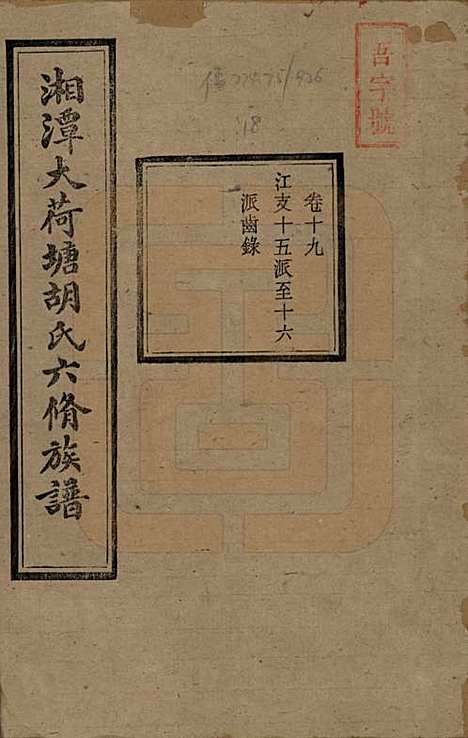 吾字號
卷十九
江支十五派至十六
派齒錄
湘潭大荷塘胡氏六脩族譜
18